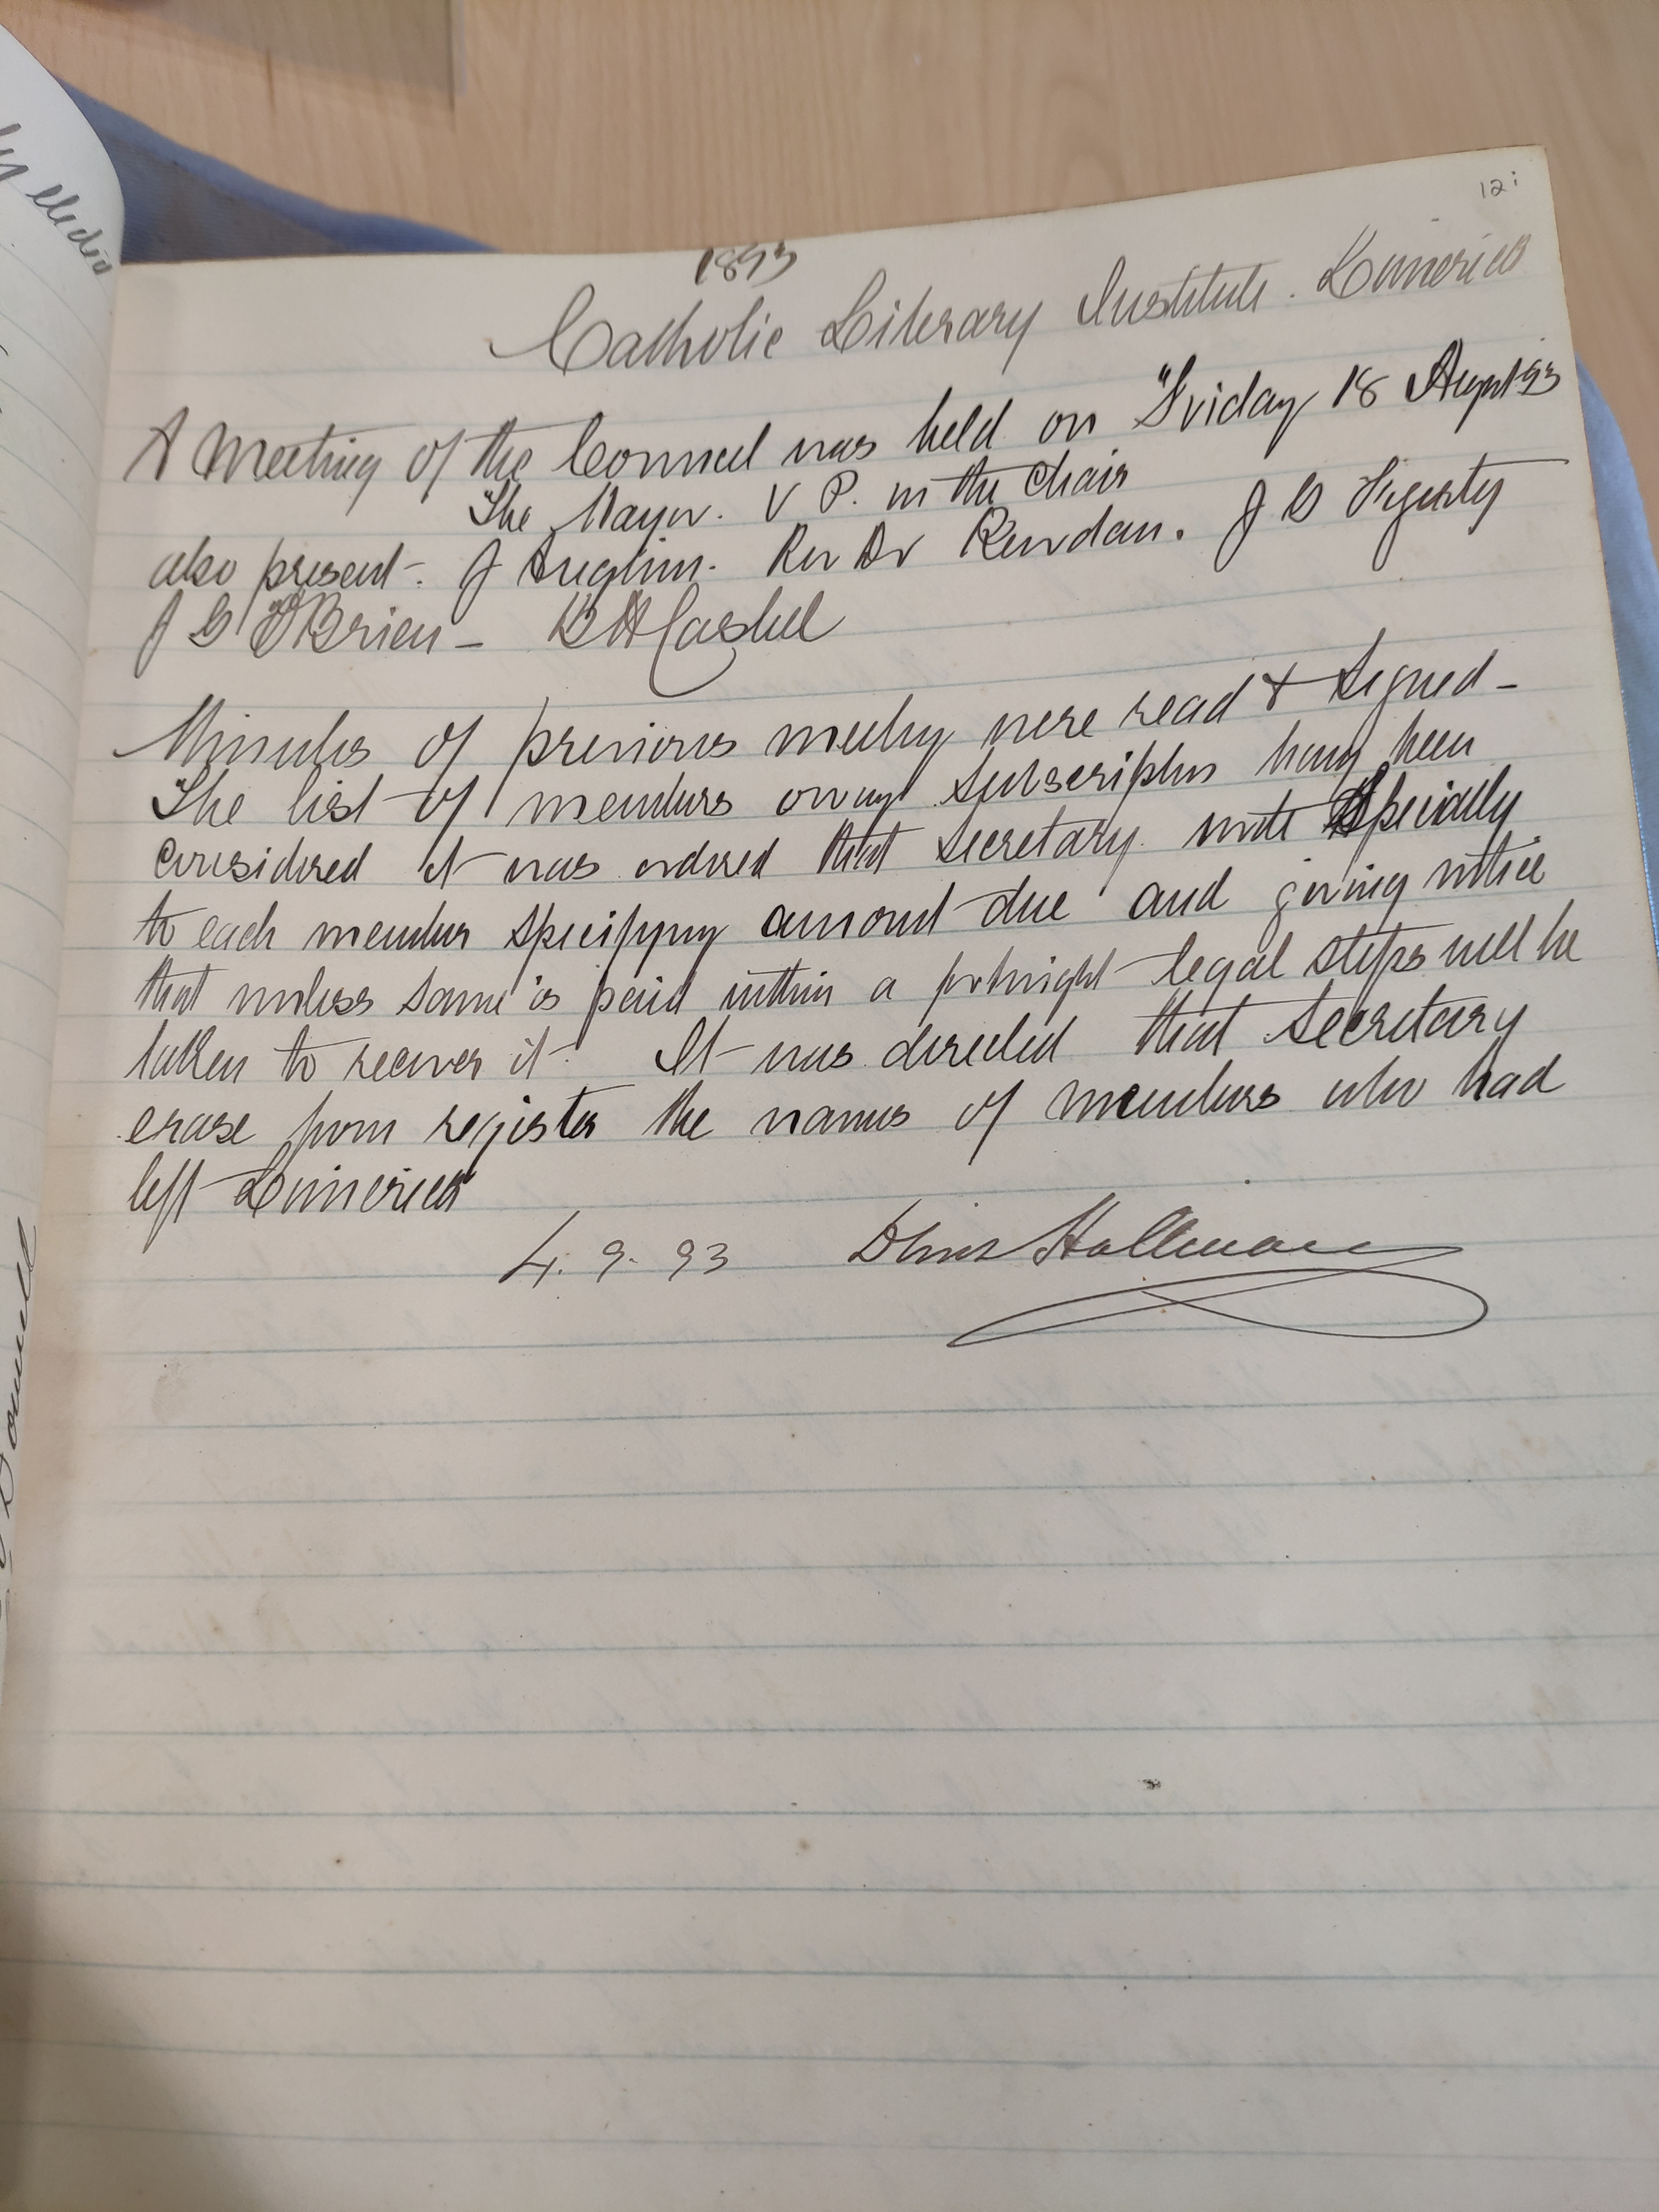 12
1893
Catholic Literary Institute. Limerick
A Meeting of the Council was held on Friday 18 August 93
The Mayor. V P. in the Chair
also present. J Anglim. Rev Dr J G Fogerty
J G O'Brien - Cashel
Minutes of previous meeting were read & signed -
The list of members owing subscription having been
considered it was ordered that Secretary write specially
to each member specifying amount due and giving notice
that unless same is paid within a fortnight legal steps will be
taken to recover it. It was directed that Secretary
erase from register the names of members who had
left Limerick
4. 9. 93